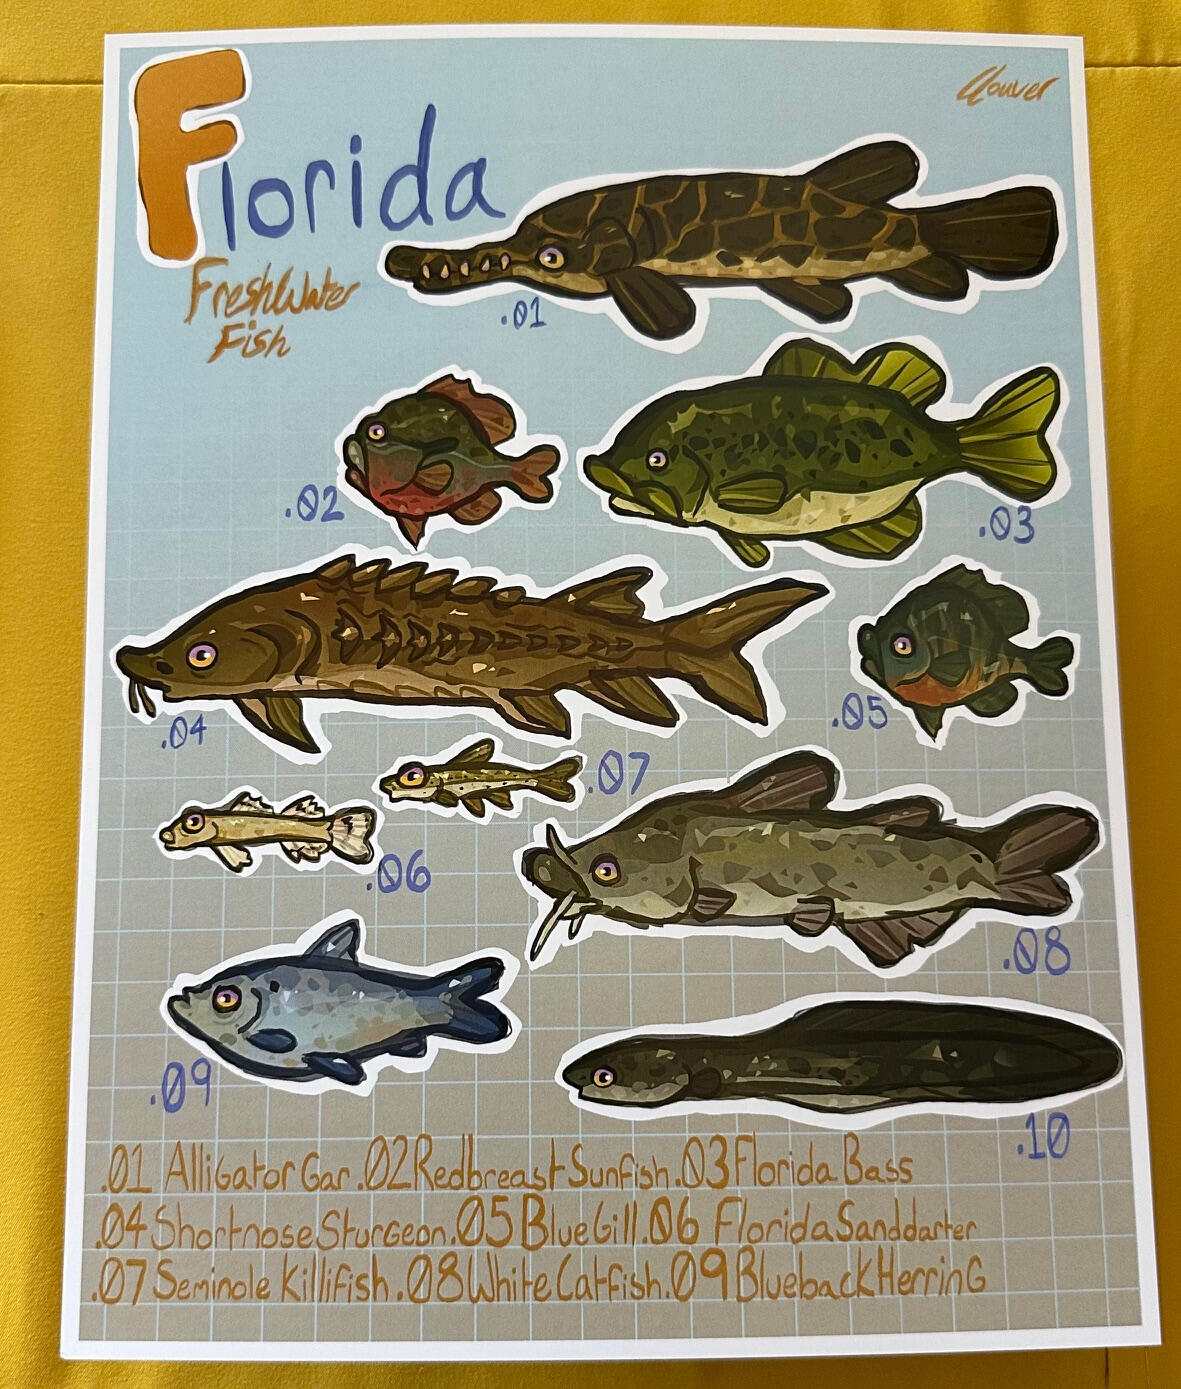 Florida
Clouver
FreshWater
Fish
.01
.02
.03
.04
.05
.07
.06
.08
.09
.10
.01 Alligator Gar .02 Redbreast Sunfish .03 Florida Bass
.04 Shortnose Sturgeon .05 BlueGill .06 Florida Sanddarter
.07 Seminole Killifish .08 White Catfish .09 Blueback Herring